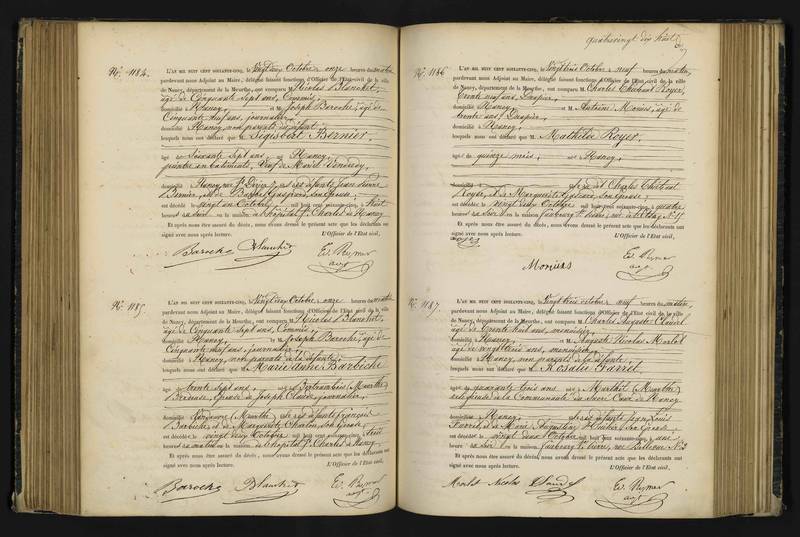 quatrevingt dix huit
N°. 1184.
L'AN MIL HUIT CENT SOIXANTE-CINQ, le vingt deux Octobre, onze heures du matin
pardevant nous Adjoint au Maire, délégué faisant fonctions d'Officier de l'Etat-civil de la ville
de Nancy, département de la Meurthe, ont comparu M. Nicolas Blanchet,
âgé de Cinquante Sept ans, Commis,
domicilié à Nancy, et M. Joseph Baroche, âgé de
Cinquante neuf ans, journalier,
domicilié à Nancy, non parents du défunt
lesquels nous ont déclaré que Sigisbert Bernier,
âgé de Soixante Sept ans, né à Nancy,
peintre en batiments, veuf de Marie Vendredy,
domicilié à Nancy, rue St Dizier, fils des défunts Jean Pierre
Bernier, et de Barbe son Epouse,
est décédé le vingt un Octobre mil huit cent soixante-cinq, à huit
heures du soir en la maison de l'hôpital St Charles de Nancy
Et après nous être assuré du décès, nous avons dressé le présent acte que les déclarants ont
signé avec nous après lecture. L'Officier de l'Etat civil,
Baroche Blanchet Ev. Rymer
adjt
N°. 1185.
L'AN MIL HUIT CENT SOIXANTE-CINQ, le vingt deux Octobre, onze heures du matin
pardevant nous Adjoint au Maire, délégué faisant fonctions d'Officier de l'Etat-civil de la ville
de Nancy, département de la Meurthe, ont comparu M. Nicolas Blanchet,
âgé de Cinquante Sept ans, Commis,
domicilié à Nancy, et M. Joseph Baroche, âgé de
Cinquante neuf ans, journalier,
domicilié à Nancy, non parents à la défunte
lesquels nous ont déclaré que Marie Anne Barbiche
âgée de trente sept ans, née à (Meurthe)
Epouse de Joseph Claude, journalier,
domiciliée à (Meurthe) fille des défunts François
Barbiche, et de Marguerite Charton, son Epouse,
est décédée le vingt deux Octobre mil huit cent soixante-cinq, à huit
heures du matin en la maison de l'hôpital St Charles de Nancy
Et après nous être assuré du décès, nous avons dressé le présent acte que les déclarants ont
signé avec nous après lecture. L'Officier de l'Etat civil,
Baroche Blanchet Ev. Rymer
adjt
N°. 1186
L'AN MIL HUIT CENT SOIXANTE-CINQ, le vingt trois Octobre, neuf heures du matin,
pardevant nous Adjoint au Maire, délégué faisant fonctions d'Officier de l'Etat-civil de la ville
de Nancy, département de la Meurthe, ont comparu M. Charles Royer,
trente neuf ans,
domicilié à Nancy, et M. Antoine âgé de
trente ans,
domicilié à Nancy,
lesquels nous ont déclaré que Mathilde Royer,
âgée de quinze mois, née à Nancy,
fille de Charles
Royer, & de Marguerite son Epouse,
est décédée le vingt deux Octobre mil huit cent soixante-cinq, à quatre
heures du soir en la maison faubourg St Pierre, N° 11
Et après nous être assuré du décès, nous avons dressé le présent acte que les déclarants ont
signé avec nous après lecture. L'Officier de l'Etat civil,
Royer
Ev. Rymer
adjt
N°. 1187
L'AN MIL HUIT CENT SOIXANTE-CINQ, le vingt trois octobre, neuf heures du matin,
pardevant nous Adjoint au Maire, délégué faisant fonctions d'Officier de l'Etat-civil de la ville
de Nancy, département de la Meurthe, ont comparu M. Charles Auguste
âgé de trente huit ans, menuisier,
domicilié à Nancy, et M. Auguste Nicolas Morlot
âgé de vingt trois ans, menuisier,
domicilié à Nancy, non parents de la défunte
lesquels nous ont déclaré que Rosalie Farret,
âgée de quarante trois ans, née à (Meurthe)
religieuse de la Communauté du Sacré Coeur de Nancy
domiciliée à Nancy, fille des défunts Jean Louis
Farret, & de Marie son Epouse,
est décédée le vingt deux Octobre mil huit cent soixante-cinq, à
heures du soir en la maison faubourg St Pierre, rue N° 2
Et après nous être assuré du décès, nous avons dressé le présent acte que les déclarants ont
signé avec nous après lecture. L'Officier de l'Etat civil,
Morlot Nicolas Ev. Rymer
adjt